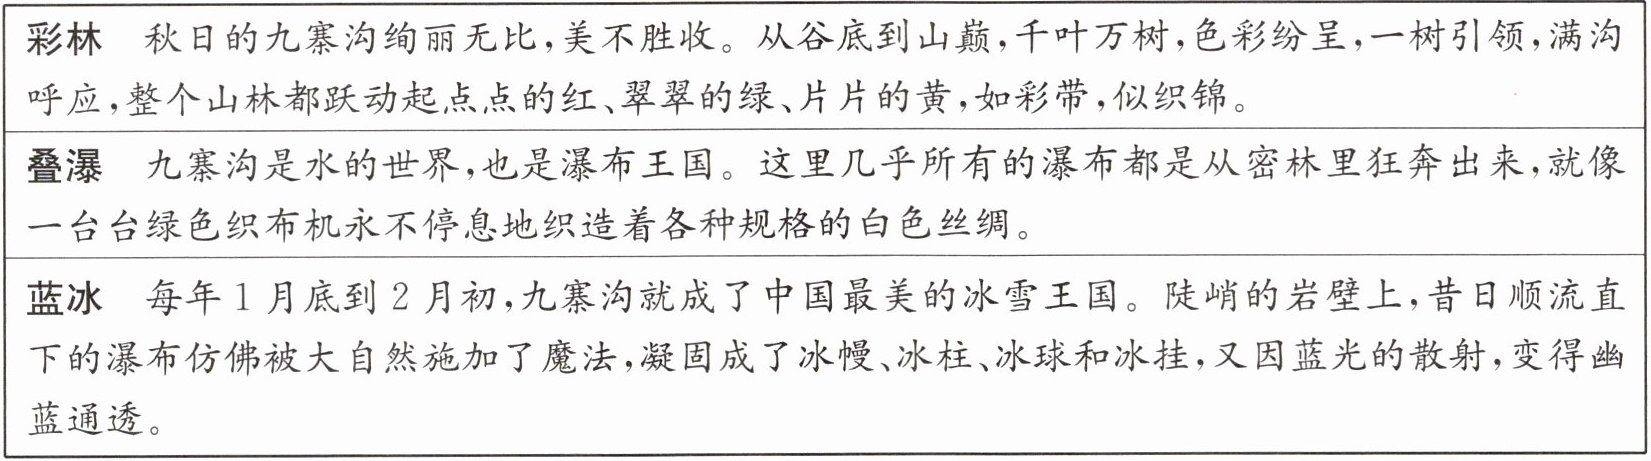 彩林　秋日的九寨沟绚丽无比,美不胜收。从谷底到山巅,千叶万树,色彩纷呈,一树引领,满沟
呼应,整个山林都跃动起点点的红、翠翠的绿、片片的黄,如彩带,似织锦。
叠瀑　九寨沟是水的世界,也是瀑布王国。这里几乎所有的瀑布都是从密林里狂奔出来,就像
一台台绿色织布机永不停息地织造着各种规格的白色丝绸。
蓝冰　每年1月底到2月初,九寨沟就成了中国最美的冰雪王国。陡峭的岩壁上,昔日顺流直
下的瀑布仿佛被大自然施加了魔法,凝固成了冰幔、冰柱、冰球和冰挂,又因蓝光的散射,变得幽
蓝通透。